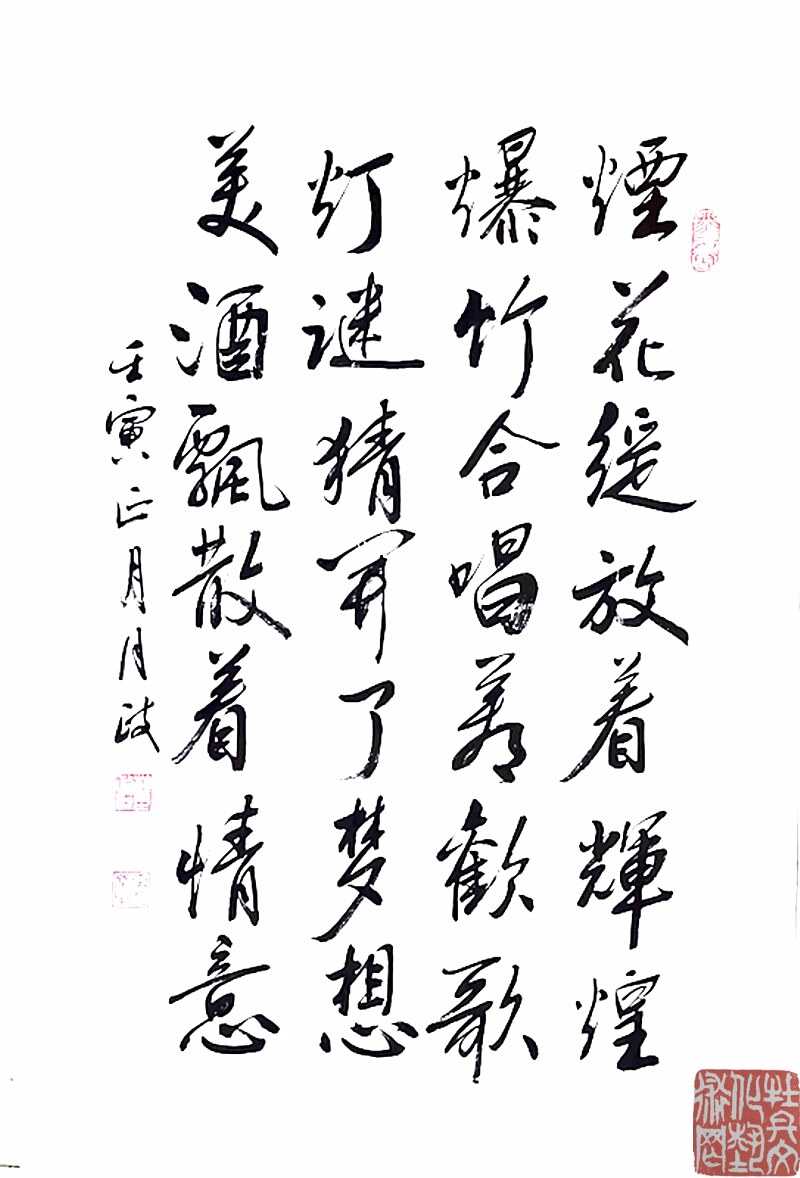 煙花綻放着輝煌
爆竹合唱着歡歌
灯谜猜开了梦想
美酒飄散着情意
壬寅正月月波